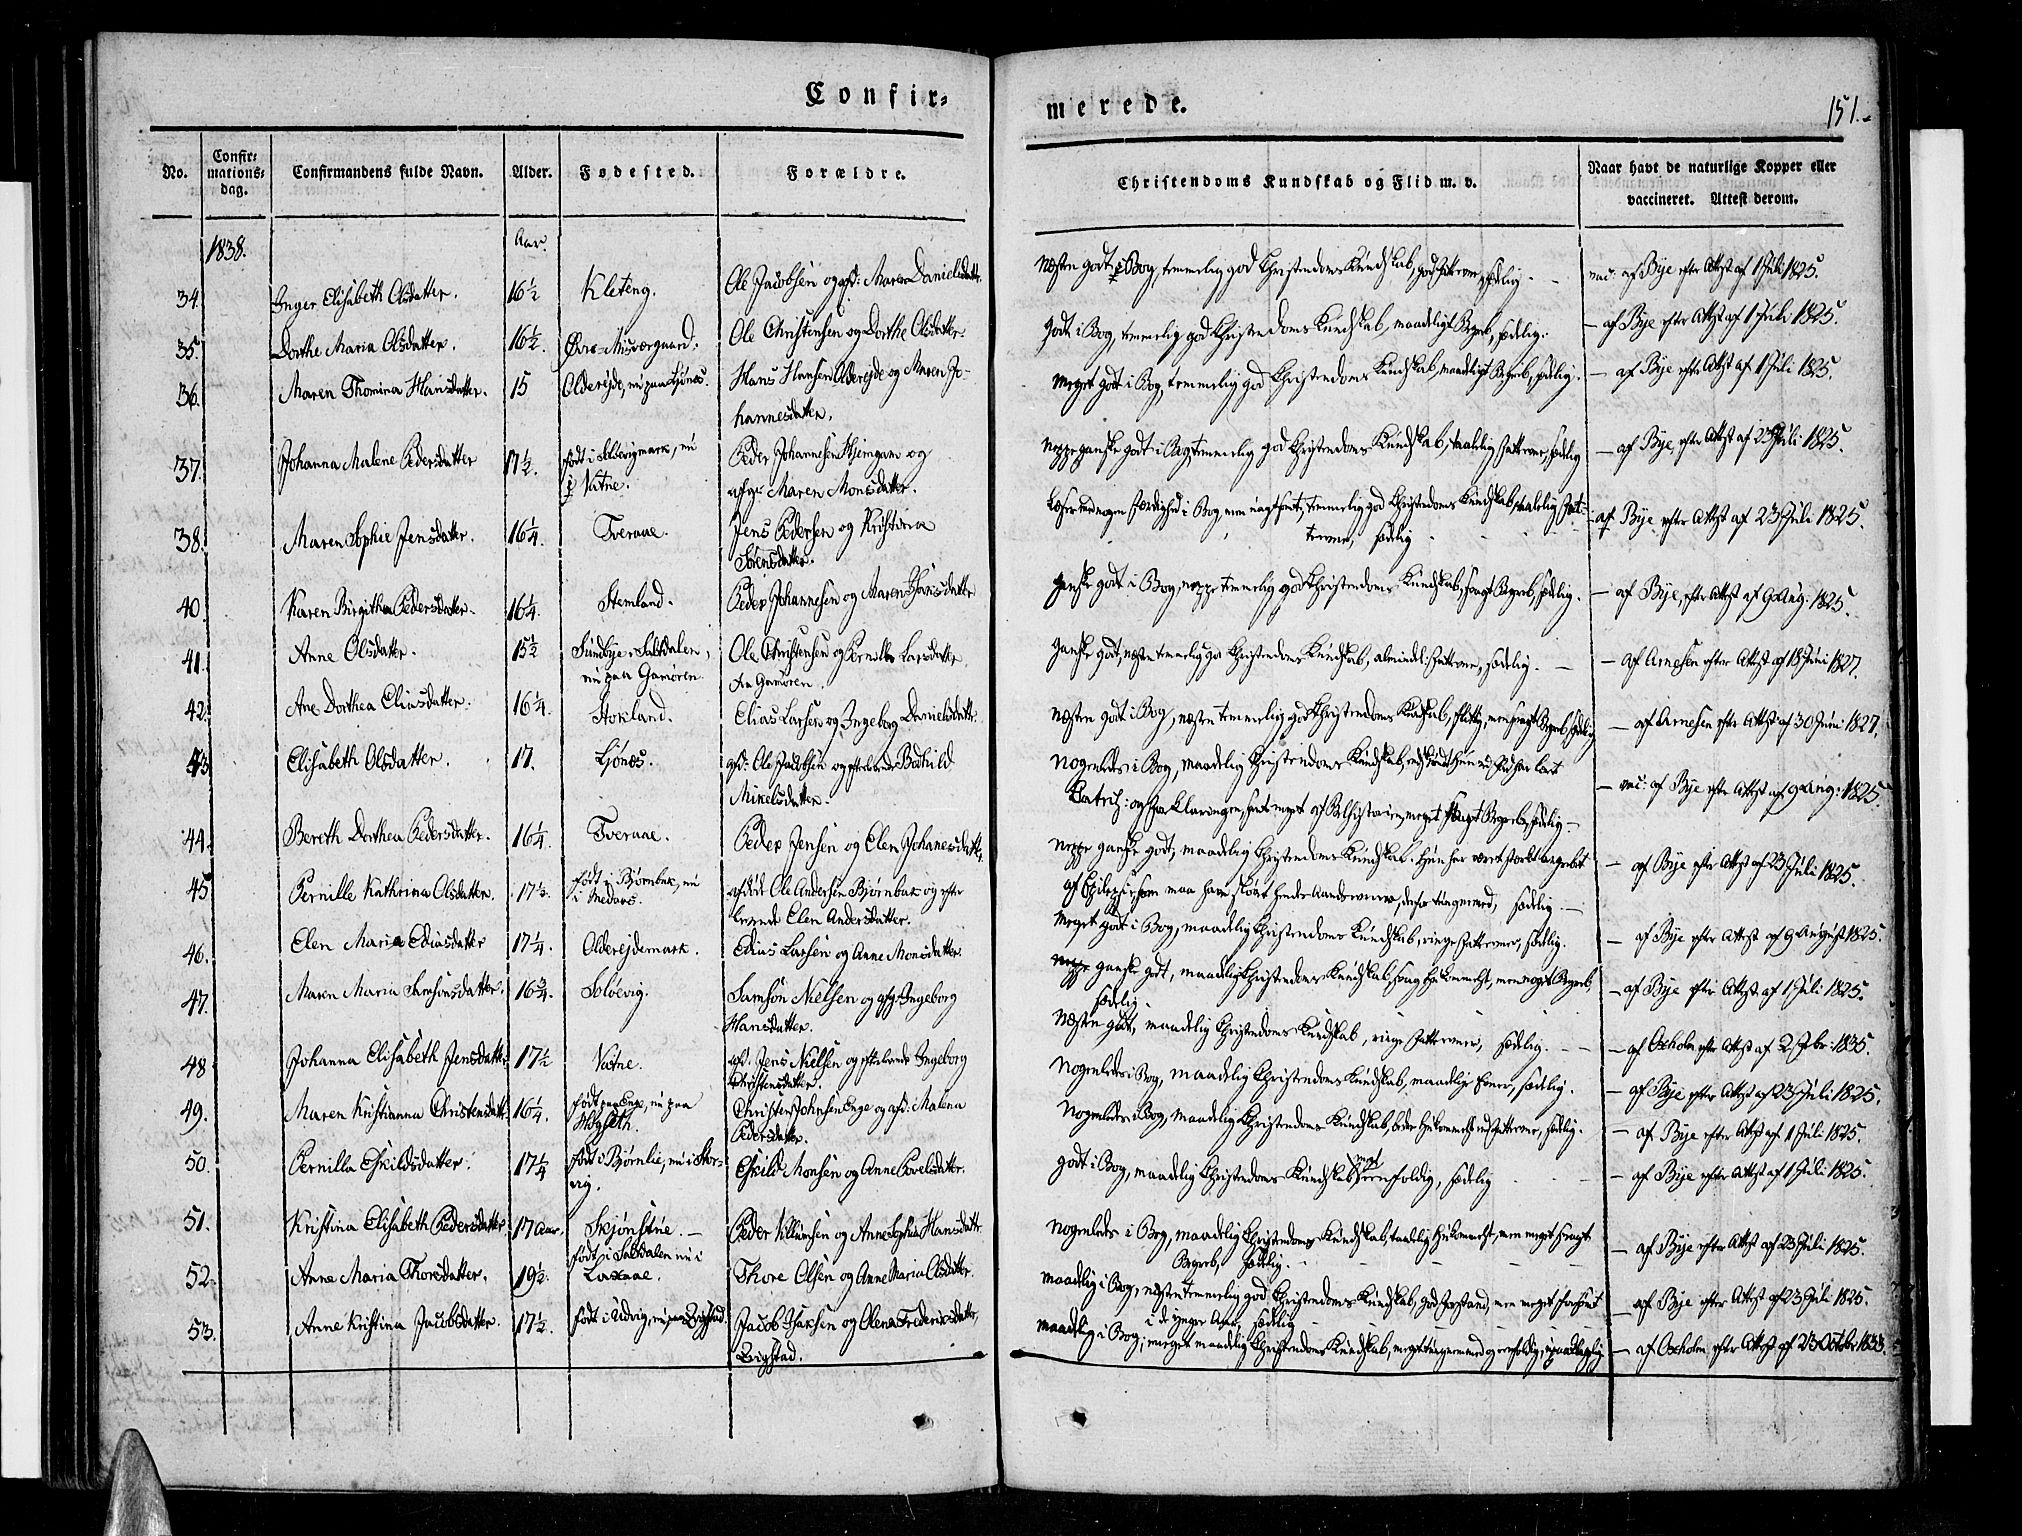 Confir-
merede.
151.
No.
Confir-
mations-
dag.
Confirmandens fulde Navn.
Alder.
Fødested.
Forældre.
Christendoms Kundskab og Flid m. v.
Naar havt de naturlige Kopper eller
vaccineret. Attest derom.
1838.
Aar.
34. Inger Elisabeth Olsdatter. 16½ Kleteng. Ole Jacobsen og afd: Maren Danielsdatt.
Næsten godt i Bog, temmelig god Christendoms Kundskab, god Fatteevne, sædelig. vac: af Bye efter Attest af 1 Juli 1825.
35. Dorthe Maria Olsdatter. 16½. Øvre-Misværgaard. Ole Christensen og Dorthe Olsdatter.
godt i Bog, temmelig god Christendoms Kundskab, maadeligt Begreb, sædelig. – af Bye efter Attest af 1 Juli 1825.
36. Maren Thomina Hansdatter. 15 Alderejde, nu paa Ljønæs. Hans Hansen Alderejde og Maren Jo-
hannesdatter.
Meget godt i Bog, temmelig god Christendoms Kundskab, maadeligt Begreb, sædelig. – af Bye efter Attest af 1 Juli 1825.
37. Johanna Malene Pedersdatter 17½. født i Solvigmark, nu
i Vatne.
Peder Johannesen Hjemgam og
afg: Maren Monsdatter.
Neppe ganske godt i Bog, temmelig god Christendoms Kundskab, maadelig Fatteevne, sædelig – af Bye, efter Attest af 23 Juli 1825.
38. Maren Sophie Jensdatter. 16¼. Tveraae. Jens Pedersen og Kristina
Sørensdatter.
Læser med nogen Færdighed i Bog, men uagtsomt, temmelig god Christendoms Kundskab, maadelig Fat-
teevne, sædelig – af Bye efter Attest af 23 Juli 1825.
40. Karen Birgitha Pedersdatter. 16¼. Stemland. Peder Johannesen og Maren Hansdatter
ganske godt i Bog, neppe temmelig god Christendoms Kundskab, svagt Begreb, sædelig. – af Bye, efter Attest af 9 Aug: 1825.
41. Anne Olsdatter. 15½ Sundbye i Saltdalen,
nu paa Gamøren.
Ole Christensen og Pernille Larsdatter
fra Gamøren.
ganske godt, næsten temmelig god Christendoms Kundskab, almindel: Fatteevne, sædelig. – af Arnesen efter Attest af 18 Juni 1827.
42. Ane Dorthea Eliasdatter. 16¼. Stokland. Elias Larsen og Ingeborg Danielsdatt.
Næsten godt i Bog, næsten temmelig god Christendoms Kundskab, flittig, men svagt Begreb, sædelig – af Arnesen efter Attest af 30 Juni 1827.
43 Elisabeth Olsdatter. 17. Ljønæs. afd: Ole Jacobsen og efterlevende Bodhild
Mikelsdatter.
Nogenledes i Bog, maadelig Christendoms Kundskab,
meget svagt Begreb, sædelig – – vac: af Bye efter Attest af 9 Aug: 1825.
44. Bereth Dorthea Pedersdatter. 16¼. Tveraae. Peder Jensen og Elen Johanesdatter.
Neppe ganske godt, maadelig Christendoms Kundskab. Hun har været stærkt angrebet
af Epilepsie, som maa have sløvet hendes Aandsevner, sædelig. – af Bye efter Attest af 23 Juli 1825.
45 Pernille Kathrina Olsdatter. 17½. født i Bjørnbak, nu
i Medaas.
afdøde Ole Andersen Bjørnbak og efter
levende Elen Andersdatter.
Meget godt i Bog, maadelig Christendoms Kundskab, ringe Fatteevner, sædelig. – af Bye efter Attest af 9 August 1825.
46. Elen Maria Ediasdatter 17¼. Alderejdemark. Edias Larsen og Anne Monsdatter.
Neppe ganske godt, maadelig Christendoms Kundskab, svag Hukommelse, men noget Begreb,
sædelig. – af Bye efter Attest af 1 Juli 1825.
47. Maren Maria Samsonsdatter. 16¾. Soløevig. Samson Nielsen og afg: Ingeborg
Hansdatter.
Næsten godt, maadelig Christendoms Kundskab, ringe Fatteevner, sædelig. – af Oxholm efter Attest af 2 Febr: 1835.
48 Johanna Elisabeth Jensdatter. 17½ Vatne. afd. Jens Nielsen og efterlevende Ingeborg
Christensdatter.
Nogenledes i Bog, maadelig Christendoms Kundskab, maadelige Evner, sædelig. – af Bye efter Attest af 23 Juli 1825.
49. Maren Kristianna Christensdatt. 16¼. født paa Enge, nu paa
Mogseth.
Christen Johnsen Enge og afd: Malena
Pedersdatter.
Nogenledes i Bog, maadelig Christendoms Kundskab, bedre Hukommelse end Fatteevne, sædelig. – af Bye efter Attest af 1 Juli 1825.
50. Pernilla Eskildsdatter. 17¼ født i Bjørnlie, nu i Stor-
vig.
Eskild Monsen og Anne Povelsdatter.
godt i Bog, maadelig Christendoms Kundskab, meget eenfoldig, sædelig – af Bye efter Attest af 1 Juli 1825.
51. Kristina Elisabeth Pedersdatter. 17 Aar. Skjønstue. – Peder Villumsen og Anne Sophia Hansdatt.
Nogenledes i Bog, maadelig Christendoms Kundskab, taalelig Hukommelse, men meget svagt
Begreb, sædelig. – af Bye efter Attest af 23 Juli 1825.
52. Anne Maria Thorsdatter. 19½. født i Saltdalen nu i
Laxaae.
Thore Olsen og Anne Maria Olsdatter.
maadelig i Bog, næsten temmelig god Christendoms Kundskab, god Forstand, men meget forsømt
i de yngre Aar, sædelig – af Bye efter Attest af 23 Juli 1825.
53. Anne Kristina Jacobsdatter. 17½. født i Udvig, nu paa Brigstad. Jacob Isaksen og Olena Frederiksdatter,
Brigstad.
maadelig i Bog, meget maadelig Christendoms Kundskab, meget tungnemmed og eenfoldig, – af Oxholm efter Attest af 23 October 1833.